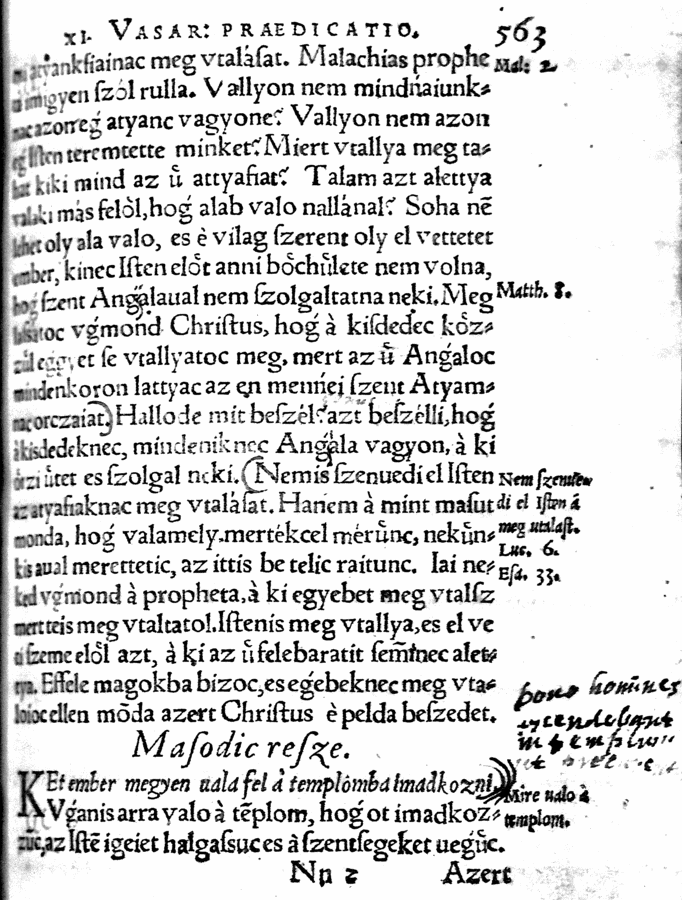 XI. VASAR: PRAEDICATIO. 563
atyankfiainac meg vtalásat. Malachias prophe
imigyen ſzól rulla. Vallyon nem mindńaiunk⸗
nac azon eǵ atyanc vagyone? Vallyon nem azon
eǵ Iſten teremtette minket? Miert vtallya meg ta⸗
hat kiki mind az ű attyafiat? Talam azt alettya
valaki más felől, hoǵ alab valo nallánal? Soha nē
lehet oly ala valo, es è vilag ſzerent oly el vettetet
ember, kinec Iſten előt anni bőchűlete nem volna,
hoǵ ſzent Anǵalaual nem ſzolgaltatna neki. Meg
lassatoc vǵmond Chriſtus, hoǵ à kiſdedec kőz⸗
zűl eggyet ſe vtallyatoc meg, mert az ű Anǵaloc
mindenkoron lattyac az en meńńei ſzent Atyam⸗
nac orczaiat. Hallode mit beſzél? azt beſzélli, hoǵ
à kisdedeknec, mindeniknec Anǵala vagyon, à ki
őrzi űtet es ſzolgal neki. (Nemis ſzenuedi el Iſten
az atyafiaknac meg vtalásat. Hanem à mint maſut
monda, hoǵ valamely mertékcel mérűnc, nekűn⸗
kis aual merettetic, az ittis be telic raitunc. Iai ne⸗
ked vǵmond à propheta, à ki egyebet meg vtalſz
mert teis meg vtaltatol. Iſtenis meg vtallya, es el ve
ti ſzeme elől azt, à ki az ű felebaratit ſem̄inec alet⸗
tya. Effele magokba bizoc, es eǵebeknec meg vta⸗
loioc ellen mōda azert Chriſtus è pelda beſzedet.
Maſodic reſze.
KEt ember megyen uala fel à templomba imadkozni,
Vǵanis arra valo à tēplom, hoǵ ot imadkoz⸗
zűc, az Iſtē igeiet halgaſſuc es à ſzentſegeket ueǵűc.
Nn 2 Azert
Mal: 2.
Matth. 8.
Nem ſzenue⸗
di el Iſten á
meg utalaſt.
Luc. 6.
Eſa. 33.
homines
ascendebant
in templum
Mire ualo à
templom.